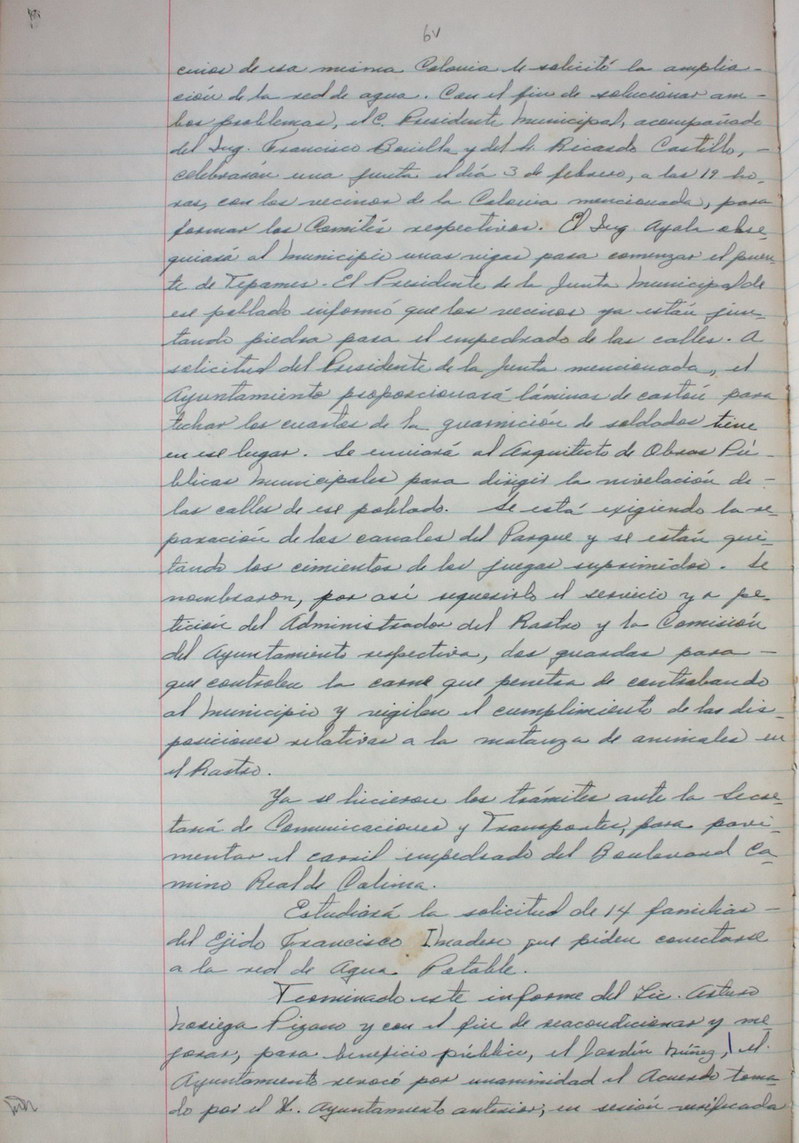 6v
cinos de esa misma Colonia le solicitó la amplia-
ción de la red de agua. Con el fin de solucionar am-
bos problemas, el C. Presidente Municipal, acompañado
del Ing. Francisco Bonilla y del Sr. Ricardo Castillo, -
celebrarán una junta el día 3 de febrero, a las 19 ho-
ras, con los vecinos de la Colonia mencionada, para
formar los Comités respectivos. El Ing Ayala obse-
quiará al Municipio unas vigas para comenzar el puen-
te de Tepames. El Presidente de la Junta Municipal de
ese poblado informó que los vecinos ya están jun-
tando piedra para el empedrado de las calles. A
solicitud del Presidente de la Junta mencionada, el
Ayuntamiento proporcionará láminas de cartón para
techar los cuartos de la guarnición de soldados tiene
en ese lugar. Se enviará al Arquitecto de Obras Pú-
blicas Municipales para dirigir la nivelación de -
las calles de ese poblado. Se está exigiendo la re-
paración de los canales del Parque y se están qui-
tando los cimientos de los juegos suprimidos. Se
nombraron, por así requerirlo el servicio y a pe-
tición del Administrador del Rastro y la Comisión
del Ayuntamiento respectiva, dos guardas para -
que controlen la carne que penetra de contrabando
al Municipio y vigilen el cumplimiento de las dis-
posiciones relativas a la matanza de animales en
el Rastro.
Ya se hicieron los trámites ante la Secre-
taría de Comunicaciones y Transportes, para pavi-
mentar el carril empedrado del Boulevard Ca-
mino Real de Colima.
Estudiará la solicitud de 14 familias -
del Ejido Francisco I Madero que piden conectarse
a la red de Agua Potable.
Terminado este informe del Lic. Arturo
Noriega Pizano y con el fin de reacondicionar y me-
jorar, para beneficio público, el Jardín Núñez, el
Ayuntamiento revocó por unanimidad el Acuerdo toma-
do por el H. Ayuntamiento anterior, en sesión verificada